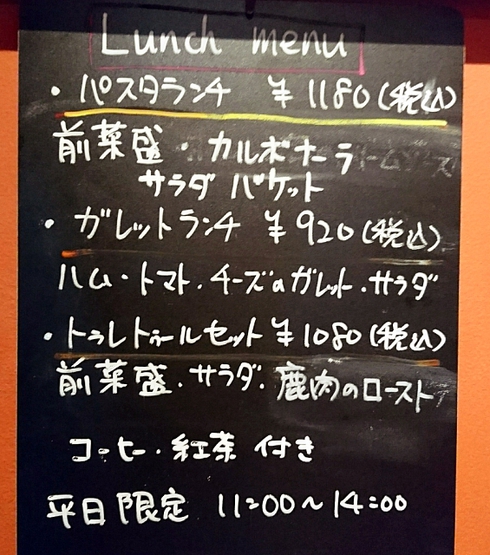 Lunch menu
・パスタランチ ¥1180(税込)
前菜盛・カルボナーラ
サラダ バケット
・ガレットランチ ¥920(税込)
ハム・トマト・チーズのガレット・サラダ
・トゥレトゥールセット ¥1080(税込)
前菜盛・サラダ・鹿肉のロースト
コーヒー・紅茶 付き
平日限定 11:00～14:00